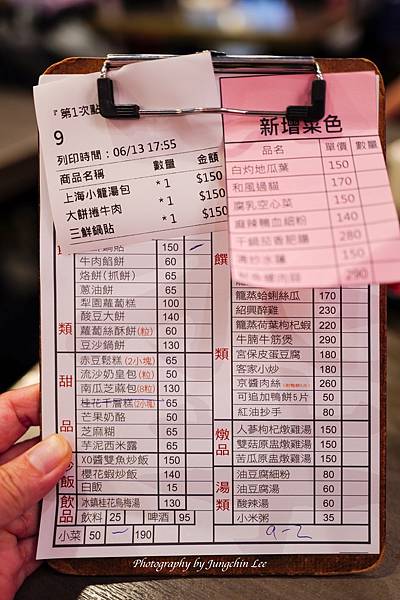 『 第1次點
9
列印時間：06/13 17:55
商品名稱 數量 金額
上海小籠湯包 *1 $150
大餅捲牛肉 *1 $150
三鮮鍋貼 *1 $150
新增菜色
品名 單價 數量
白灼地瓜葉 150
和風過貓 170
腐乳空心菜 150
麻辣鴨血細粉 140
干鍋茄香肥腸 280
150
290
鍋貼 150
牛肉餡餅 60
烙餅(抓餅) 65
蔥油餅 65
梨園蘿蔔糕 100
酸豆大餅 140
蘿蔔絲酥餅(粒) 60
豆沙鍋餅 130
類
甜品
赤豆鬆糕(2小塊) 65
流沙奶皇包(粒) 50
南瓜芝蔴包(8粒) 130
桂花千層糕(2小塊) 65
芒果奶酪 50
芝麻糊 65
芋泥西米露 65
飯
XO醬雙魚炒飯 150
櫻花蝦炒飯 140
白飯 15
飲品
冰鎮桂花烏梅湯 130
飲料 25 啤酒 95
小菜 50 190
饌類
龍蒸蛤蜊絲瓜 170
紹興醉雞 230
龍蒸荷葉枸杞蝦 220
牛腩牛筋煲 290
宮保皮蛋豆腐 180
客家小炒 180
京醬肉絲 260
可追加鴨餅5片 50
紅油抄手 80
燉品
人蔘枸杞燉雞湯 150
雙菇原盅燉雞湯 150
苦瓜原盅燉雞湯 150
湯類
油豆腐細粉 80
油豆腐湯 60
酸辣湯 60
小米粥 35
a-2
Photography by Jungchin Lee